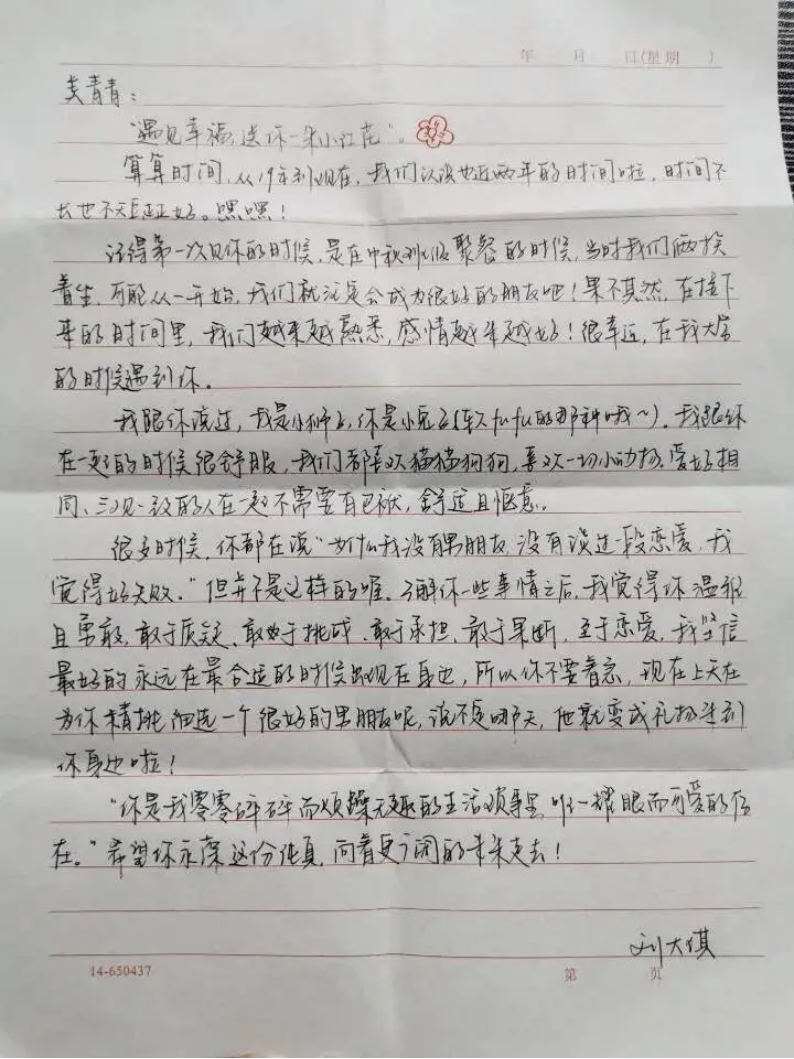 年 月 日(星期 )
青青：
“遇见幸福,送你一朵小红花”。
算算时间，从19年到现在，我们认识快近两年的时间啦，时间不
长也不短正正好。嘿嘿！
记得第一次见你的时候，是在中秋那次聚餐的时候，当时我们俩挨
着坐，可能从一开始，我们就注定会成为很好的朋友吧！果不其然，在接下
来的时间里，我们越来越熟悉，感情越来越好！很幸运，在我大学
的时候遇到你。
我跟你说过，我是小狮子，你是小兔子(软fufu的那种哦～)。我跟你
在一起的时候很舒服，我们都喜欢猫猫狗狗，喜欢一切小动物。爱好相
同、三观一致的人在一起不需要有包袱，舒适且惬意。
很多时候，你都在说“为什么我没有男朋友，没有谈过一段恋爱，我
觉得好失败。”但并不是这样的喔。了解你一些事情之后，我觉得你温和
且勇敢，敢于质疑、敢于挑战、敢于承担、敢于果断，至于恋爱，我坚信
最好的永远在最合适的时候出现在身边，所以你不要着急，现在上天在
为你精挑细选一个很好的男朋友呢，说不定哪天，他就变成礼物送到
你身边啦！
“你是我零零碎碎而烦躁无趣的生活琐事里，唯一耀眼而可爱的存
在。”希望你永葆这份纯真，向着更广阔的未来走去！
刘大琪
14-650437 第 页